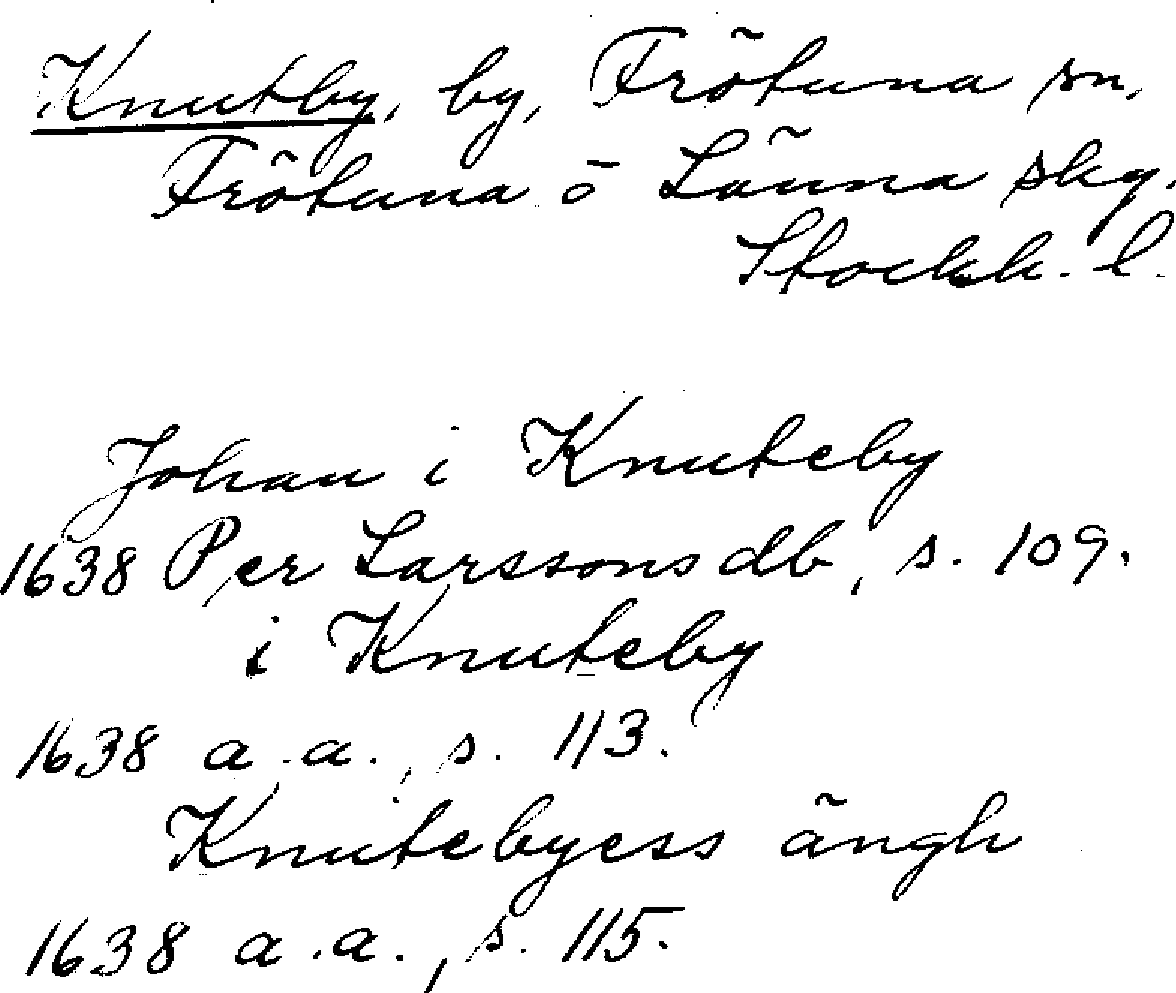 Knutby, by, Frötuna sn,
Frötuna o Länna skg,
Stockh. l.
Johan i Knuteby
1638 Per Larssons db, s. 109.
i Knuteby
1638 a.a., s. 113.
Knutebyess ängh
1638 a.a., s. 115.